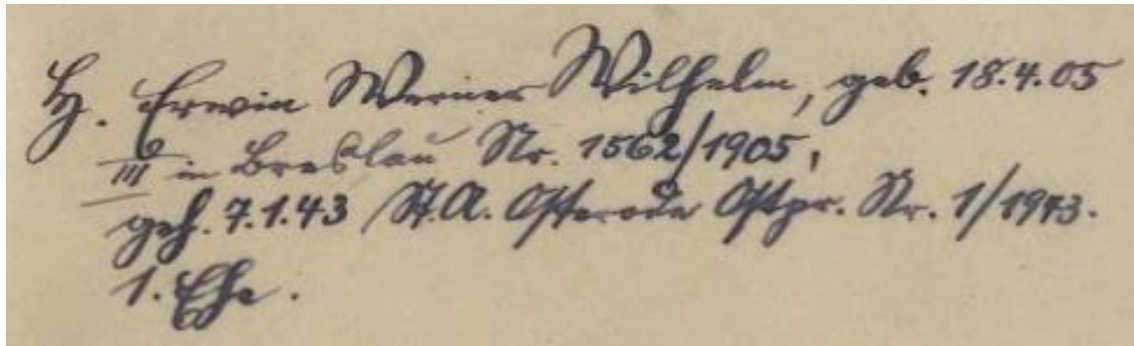 H. Erwin Werner Wilhelm, geb. 18.4.05
III in Breslau Nr. 1562/1905,
geh. 7.1.43 St.A. Osterode Ostpr. Nr. 1/1943.
1. Ehe.